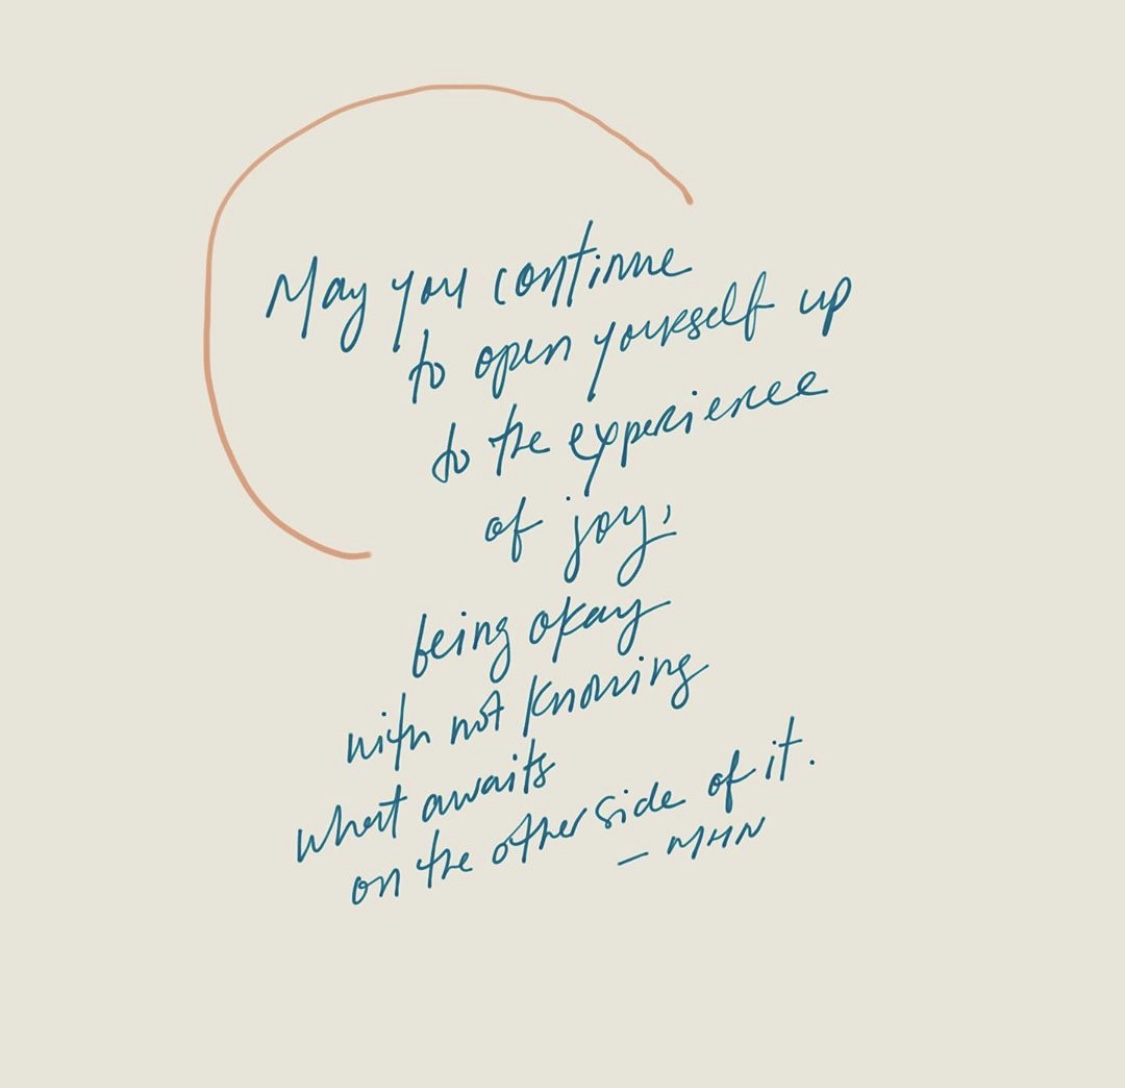 May you continue
to open yourself up
to the experience
of joy,
being okay
with not knowing
what awaits
on the other side of it.
— MHN